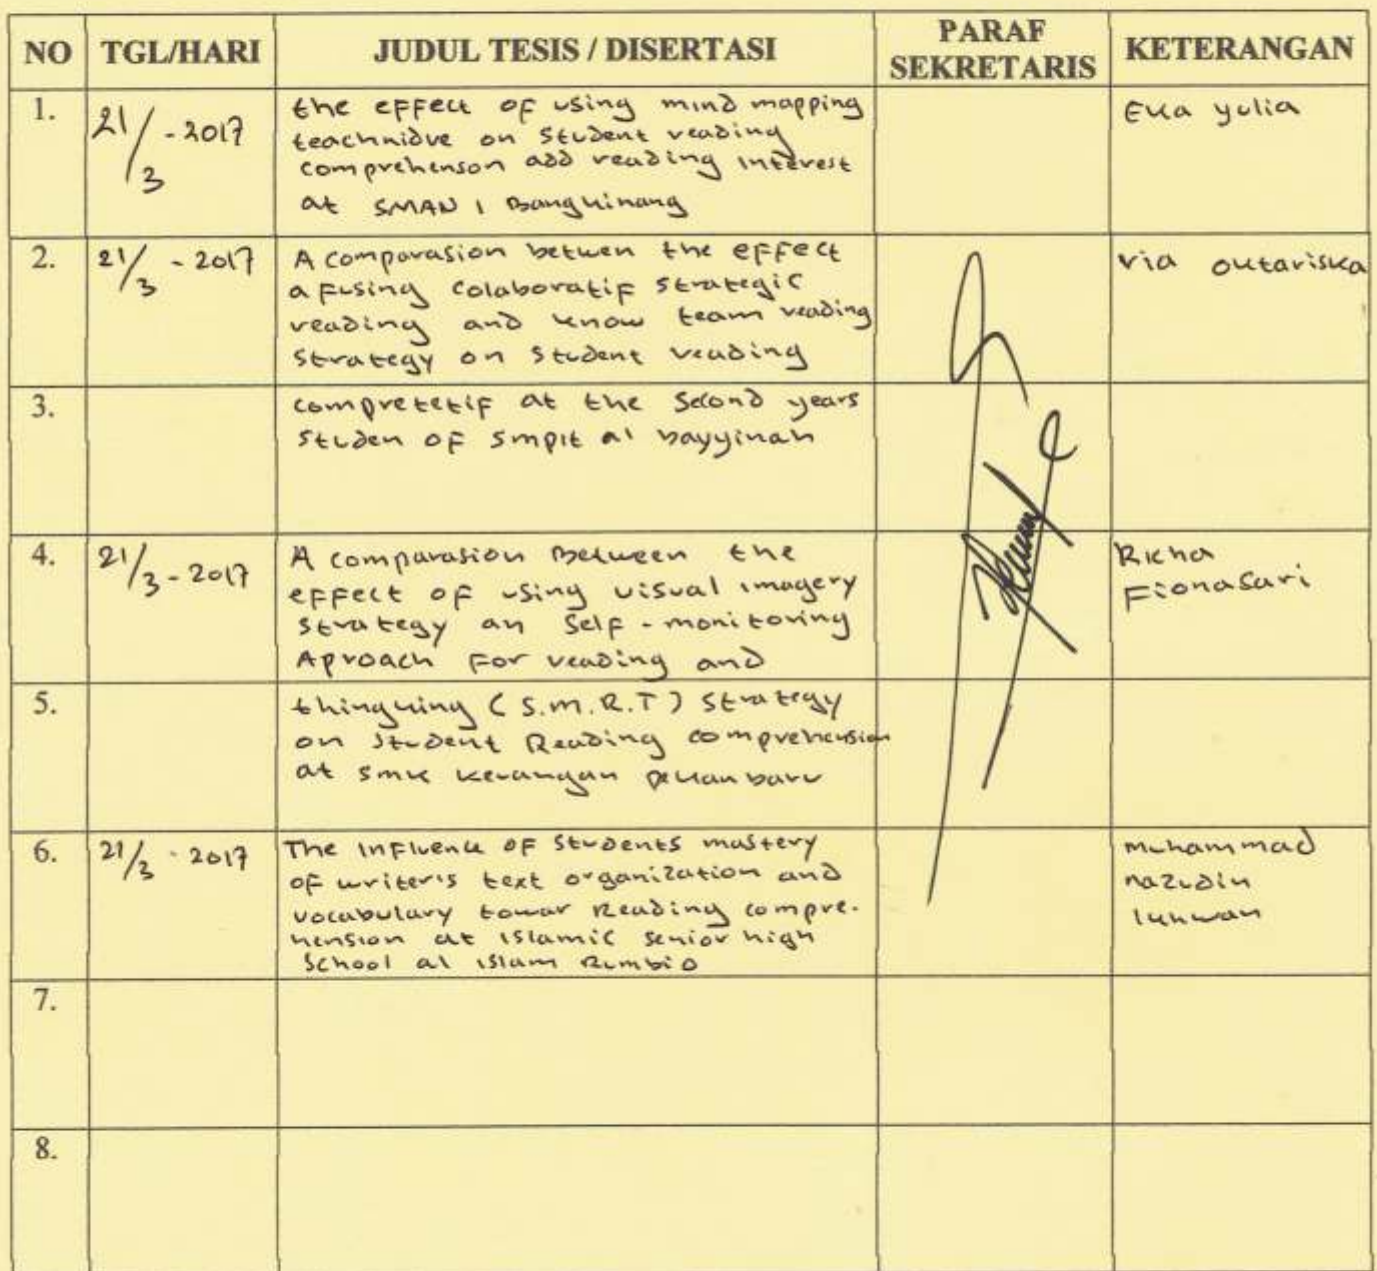 NO TGL/HARI JUDUL TESIS / DISERTASI PARAF SEKRETARIS KETERANGAN
1. 21/3 - 2017 the effect of using mind mapping Eka yulia
teachnidve on student reading
comprehenson add reading interest
at SMAN 1 Bangkinang
2. 21/3 - 2017 A comparasion betwen the effect via oktariska
a fusing colaboratif strategic
reading and know team reading
strategy on student reading
3. compretetif at the second years
studen of smpit al bayyinah
4. 21/3 - 2017 A comparasion Between the Richa
effect of using visual imagery Fionasari
strategy an self - monitoring
Aproach for reading and
5. thingking (S.M.R.T) strategy
on student Reading comprehension
at smk kerangan pekanbaru
6. 21/3 - 2017 The influence of students mastery muhammad
of writer's text organization and nazudin
vocabulary towar Reading compre- ikhwan
hension at islamic senior high
school al islam Rumbio
7.
8.